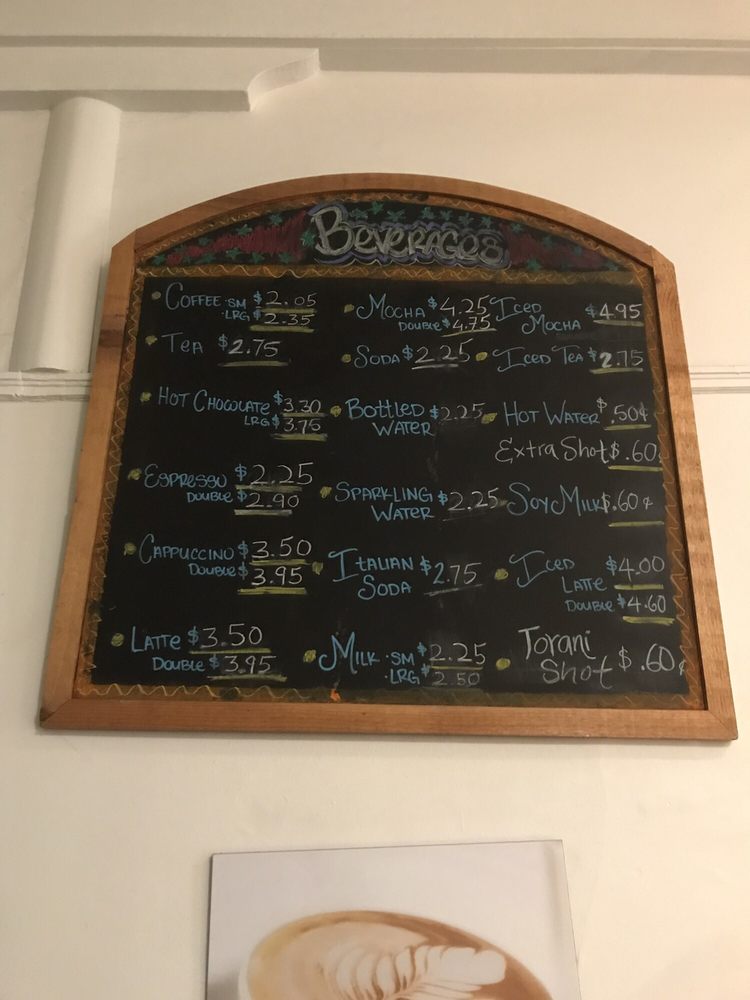 BEVERAGES
COFFEE · SM $2.05
· LRG $2.35
TEA $2.75
HOT CHOCOLATE $3.30
LRG $3.75
ESPRESSO $2.25
DOUBLE $2.90
CAPPUCCINO $3.50
DOUBLE $3.95
LATTE $3.50
DOUBLE $3.95
MOCHA $4.25
DOUBLE $4.75
SODA $2.25
BOTTLED $2.25
WATER
SPARKLING $2.25
WATER
ITALIAN $2.75
SODA
MILK · SM $2.25
· LRG $2.50
ICED $4.95
MOCHA
ICED TEA $2.75
HOT WATER $.50¢
Extra Shot $.60
SOY MILK $.60¢
ICED $4.00
LATTE
DOUBLE $4.60
Torani
Shot $.60¢